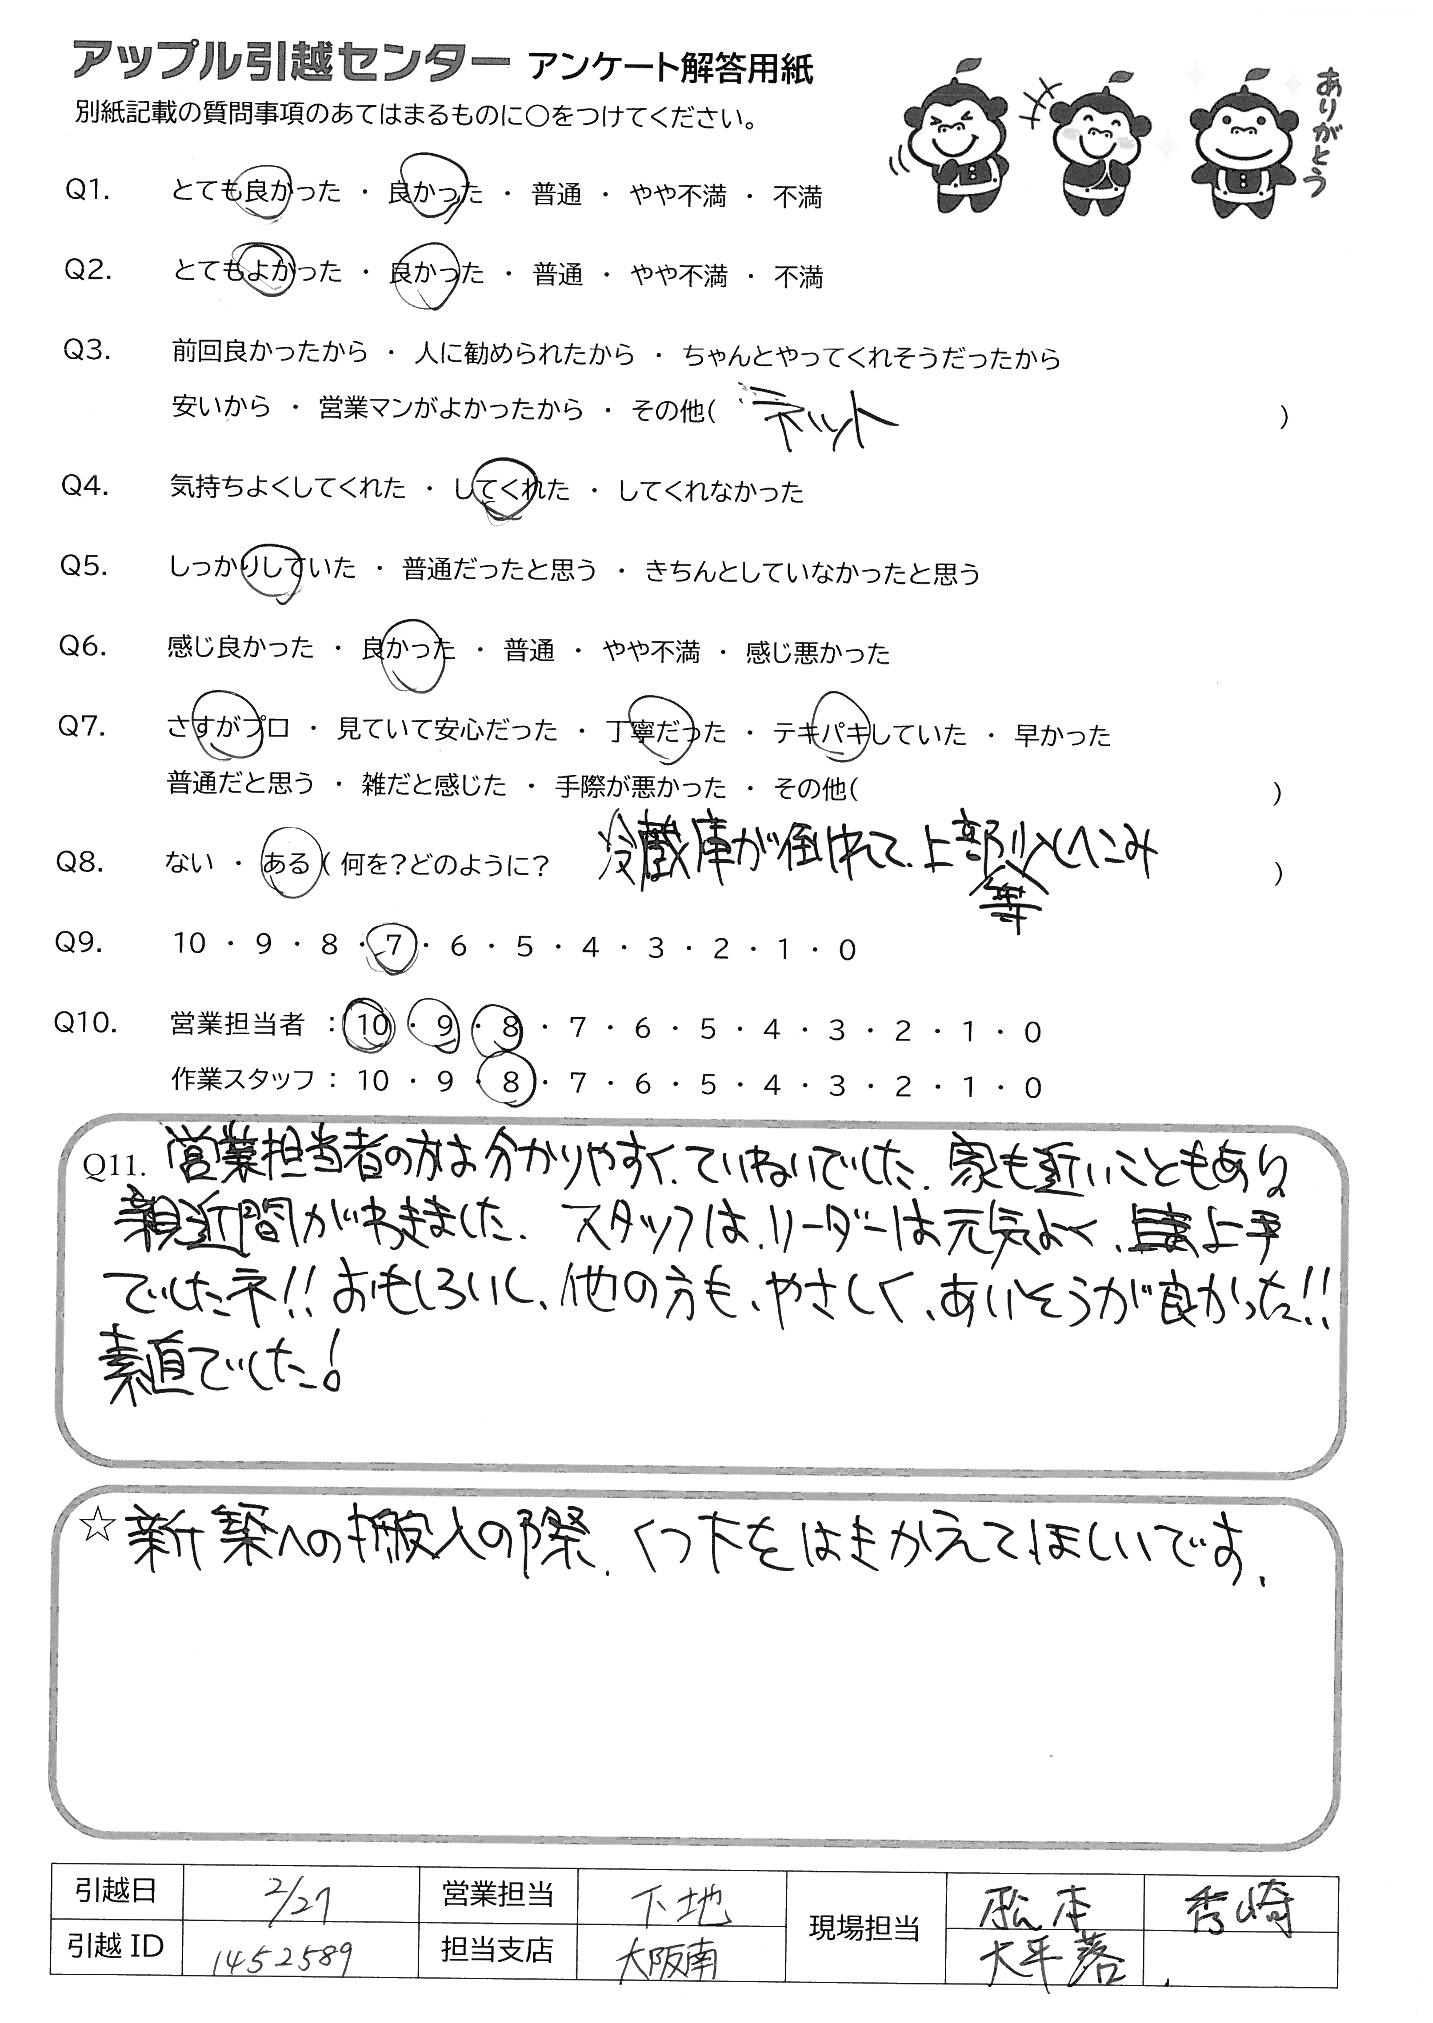 アップル引越センター アンケート解答用紙
別紙記載の質問事項のあてはまるものに○をつけてください。
ありがとう
Q1. とても良かった ・ 良かった ・ 普通 ・ やや不満 ・ 不満
Q2. とてもよかった ・ 良かった ・ 普通 ・ やや不満 ・ 不満
Q3. 前回良かったから ・ 人に勧められたから ・ ちゃんとやってくれそうだったから
安いから ・ 営業マンがよかったから ・ その他( ネット )
Q4. 気持ちよくしてくれた ・ してくれた ・ してくれなかった
Q5. しっかりしていた ・ 普通だったと思う ・ きちんとしていなかったと思う
Q6. 感じ良かった ・ 良かった ・ 普通 ・ やや不満 ・ 感じ悪かった
Q7. さすがプロ ・ 見ていて安心だった ・ 丁寧だった ・ テキパキしていた ・ 早かった
普通だと思う ・ 雑だと感じた ・ 手際が悪かった ・ その他( )
Q8. ない ・ ある ( 何を?どのように? 冷蔵庫が倒れて、上部少しへこみ )
等
Q9. 10 ・ 9 ・ 8 ・ 7 ・ 6 ・ 5 ・ 4 ・ 3 ・ 2 ・ 1 ・ 0
Q10. 営業担当者 : 10 ・ 9 ・ 8 ・ 7 ・ 6 ・ 5 ・ 4 ・ 3 ・ 2 ・ 1 ・ 0
作業スタッフ : 10 ・ 9 ・ 8 ・ 7 ・ 6 ・ 5 ・ 4 ・ 3 ・ 2 ・ 1 ・ 0
Q11. 営業担当者の方は分かりやすく、ていねいでした。家も近いこともあり
親近間がわきました。スタッフは、リーダーは元気よく、上手
でしたネ!!おもしろいし、他の方も、やさしく、あいそうが良かった!!
素直でした!
☆ 新築への搬入の際、くつ下をはきかえてほしいです。
引越日 2/27 営業担当 下地 現場担当 松本 秀崎
引越ID 1452589 担当支店 大阪南 大平落